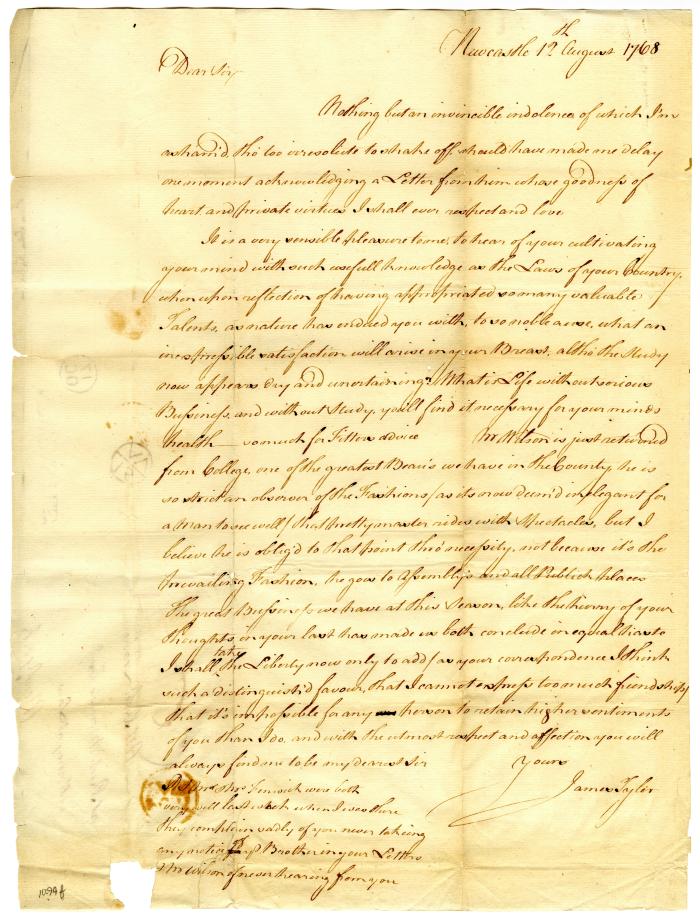 Newcastle 12th August 1768
Dear Sir
Nothing but an invincible indolence of which I'm
asham'd, tho' too irresolute to shake off, should have made me delay
one moment acknowledging a Letter from him whose goodness of
heart and private virtues I shall ever respect and love
It is a very sensible pleasure to me, to hear of your cultivating
your mind with such usefull knowledge as the Laws of your Country,
when upon reflection of having appropriated so many valuable
Talents, as nature has endued you with, to so noble a use, what an
inexpressible satisfaction will arise in your Breast, altho' the study
now appears dry and unentertaining. What is Life without serious
Bussiness, and without study, you'll find it necessary for your minds
health — so much for Fitters advice Mr. Wilson is just returned
from College, one of the greatest Beau's we have in the County, he is
so strict an observer of the Fashions / as its now deem'd inelegant for
a man to see well / that pretty master rides with Spectacles, but I
believe he is oblig'd to that point thro' necessity, not because it's the
prevailing Fashion, he goes to Assembly's and all Publick places
The great Bussiness we have at this Season, like the hurry of your
thoughts in your last has made us both conclude in equal haste
I shall take the Liberty now only to add / as your correspondence I think
such a distinguish'd favour, that I cannot express too much friendship /
that it's impossible for any person to retain higher sentiments
of you than I do, and with the utmost respect and affection you will
always find me to be my dearest Sir
Yours
James Tyler
PS Mrs. Thos. Fenwick were both
very well last week when I was there
they complain sadly of you never taking
any notice of yr. Brother in your Letters
& Mr. Wilson of never hearing from you
1099f